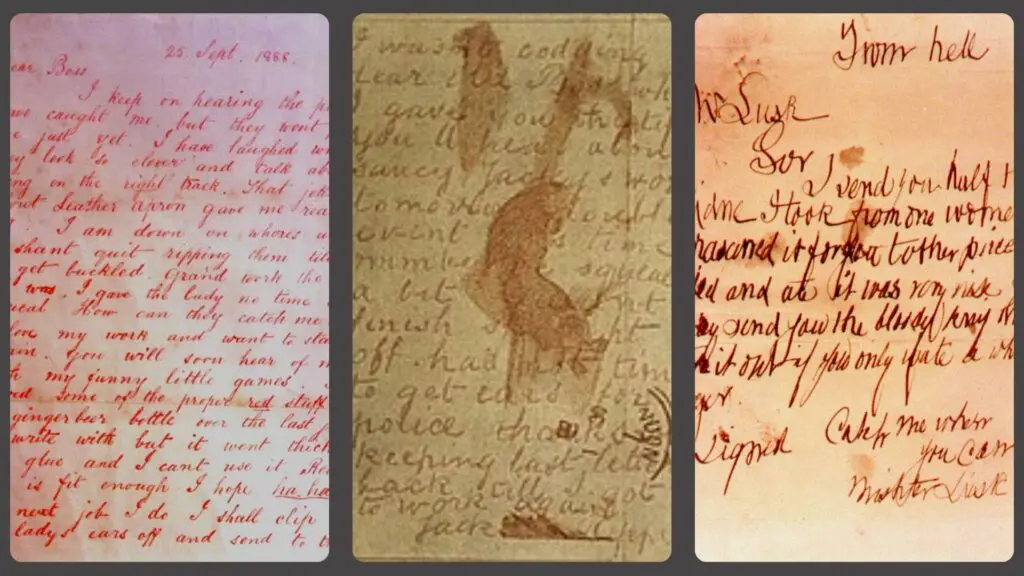 25 Sept. 1888.
ear Boss
I keep on hearing the p
ve caught me but they wont
e just yet. I have laughed w
ey look so clever and talk ab
ng on the right track. That jok
out Leather apron gave me rea
I am down on whores a
shant quit ripping them till
get buckled. Grand work the
was. I gave the lady no time
ueal How can they catch me
love my work and want to sta
ain. you will soon hear of m
th my funny little games. I
ed some of the proper red stuff
ginger beer bottle over the last
write with but it went thick
glue and I cant use it Red
is fit enough I hope ha ha
next job I do I shall clip
ladys ears off and send to t
I wasnt codding
dear old Boss wh
I gave you the tip
you'll hear about
saucy Jacky's wor
tomorrow double
event this time
number one squea
a bit couldnt
finish straight
off. had not time
to get ears for
police thanks
keeping last letter
back till I got
to work again
Jack Rippe
From hell
Mr Lusk
Sor
I send you half
idne I took from one women
prasarved it for you tother piece
ied and ate it was very nise
ay send you the bloody knif
k it out if you only wate a wh
ger.
signed
Catch me when
you Can
Mishter Lusk